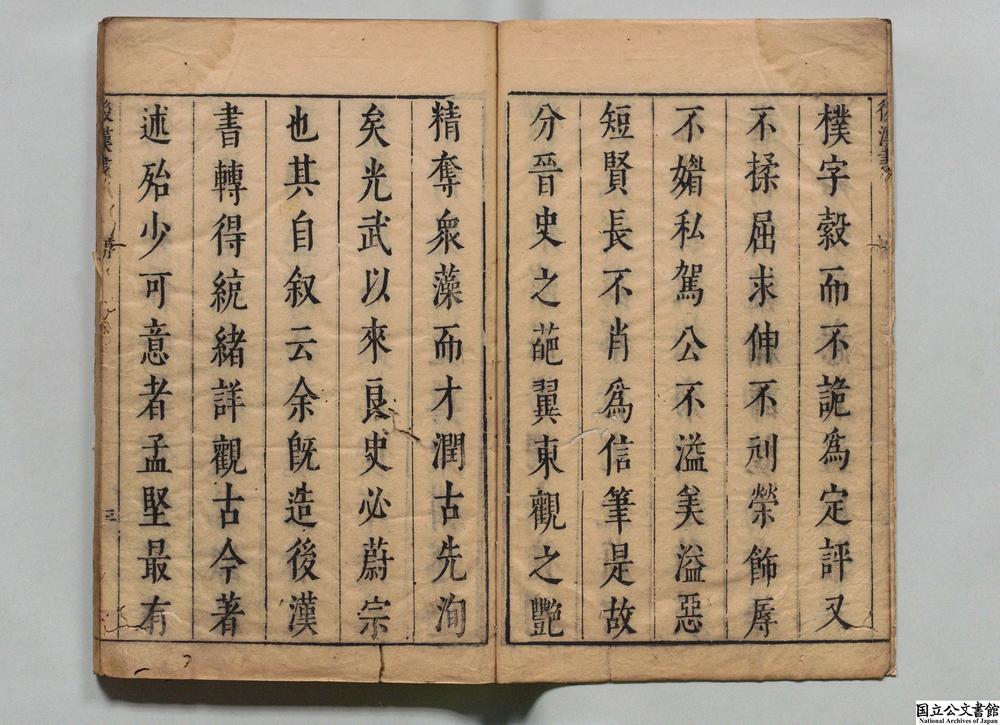 樸字縠而不詭爲定評又
不揉屈求伸不刓榮飾辱
不媚私駕公不溢美溢惡
短賢長不肖爲信筆是故
分晉史之葩翼東觀之艷
精奪衆藻而才潤古先洵
矣光武以來良史必蔚宗
也其自叙云余旣造後漢
書轉得統緒詳觀古今著
述殆少可意者孟堅最有
後漢書
後漢書
三
国立公文書館
National Archives of Japan